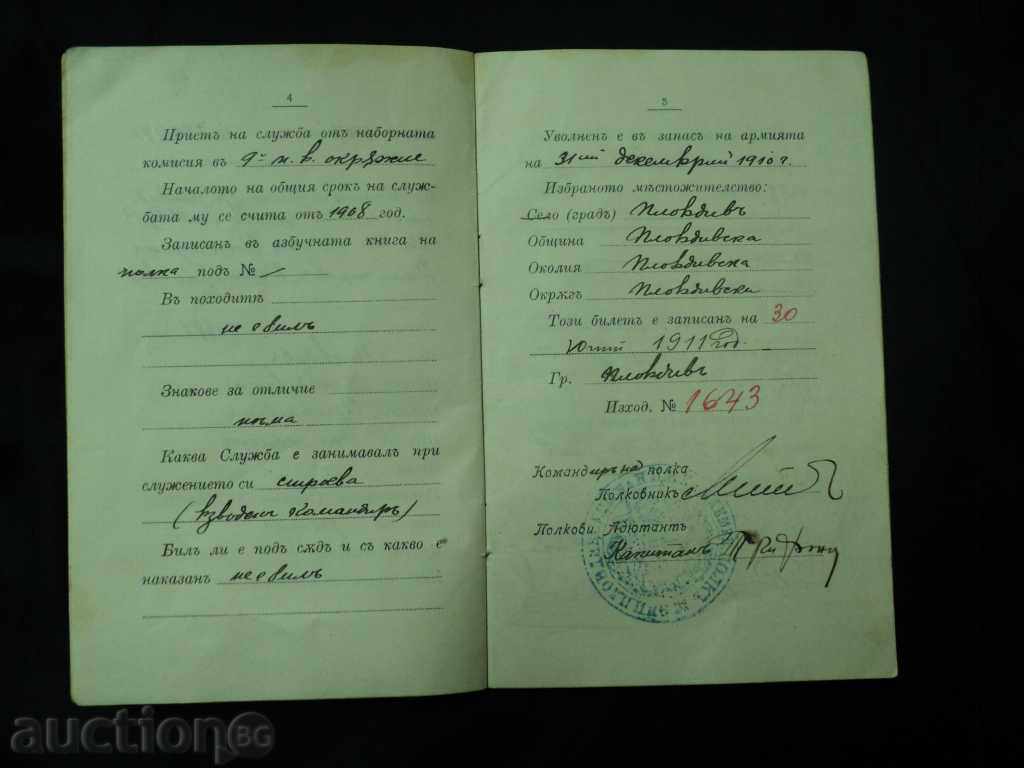 4
Приетъ на служба отъ наборната
комисия въ 9та п. в. окрѫжие
Началото на общия срокъ на служ-
бата му се счита отъ 1908 год.
Записанъ въ азбучната книга на
полка подъ №
Въ походитѣ
не е билъ
Знакове за отличие
нѣма
Каква Служба е занимавалъ при
служението си строева
(взводенъ командиръ)
Билъ ли е подъ сѫдъ и съ какво е
наказанъ не е билъ
5
Уволненъ е въ запасъ на армията
на 31ий декемврий 1910 г.
Избраното мѣстожителство:
Село (градъ) Пловдивъ
Община Пловдивска
Околия Пловдивска
Окрѫгъ Пловдивски
Този билетъ е записанъ на 30
Юний 1911 год.
Гр. Пловдивъ
Изход. № 1643
Командиръ на полка
Полковникъ
Полкови Адютантъ
Капитанъ
auction BG